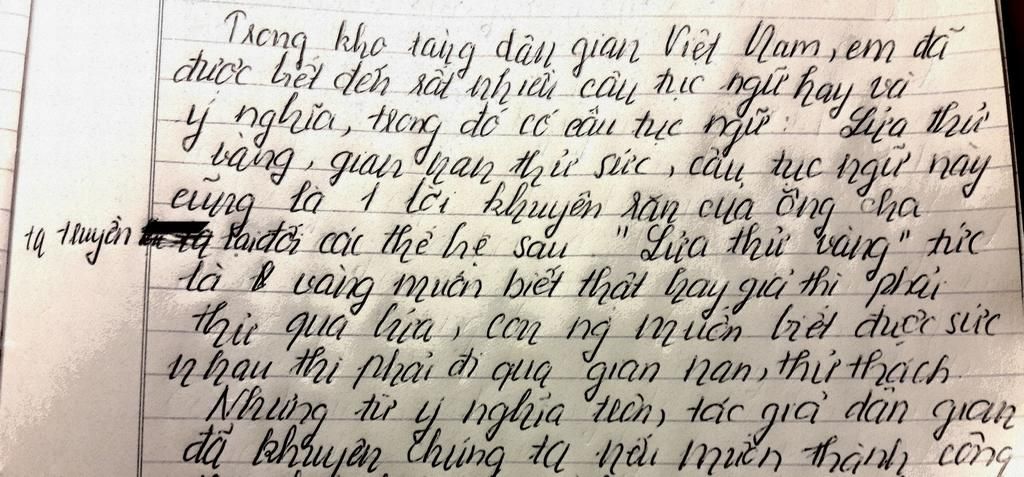 Trong kho tàng dân gian Việt Nam, em đã
được biết đến rất nhiều câu tục ngữ hay và
ý nghĩa, trong đó có câu tục ngữ: Lửa thử
vàng, gian nan thử sức, câu tục ngữ này
cũng là 1 lời khuyên răn của ông cha
ta truyền lại đời các thế hệ sau. "Lửa thử vàng" tức
là vàng muốn biết thật hay giả thì phải
thử qua lửa, con ng muốn biết được sức
nhau thì phải đi qua gian nan, thử thách.
Nhưng từ ý nghĩa trên, tác giả dân gian
đã khuyên chúng ta nếu muốn thành công